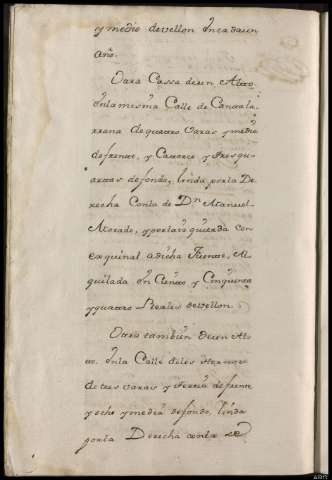 y medio de vellon en cada un
año.
Otra Cassa de un Alto
en la mesma Calle de Cantala
rrana de quatro Varas y media
de frente, y Catorce y tres qu
artas de fondo, linda por la De
recha Con la de Dn Manuel
Morado, y por la izquierda con
esquina a dicha Fuente, Al
quilada en Ciento y Cinquenta
y quatro Reales de vellon.
Otra tambien de un Al
to en la Calle de los
de tres varas y tercia de frente
y ocho y media de fondo, linda
por la Derecha con la de